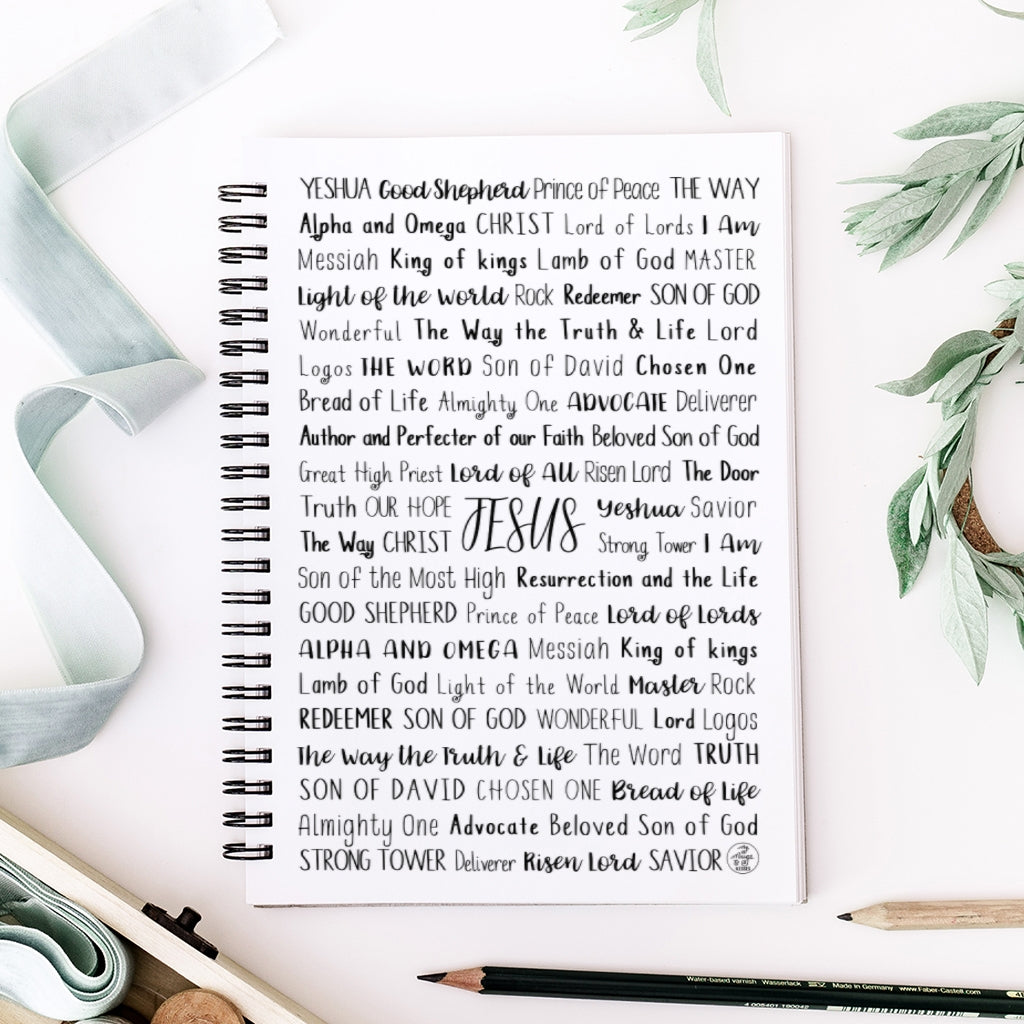 YESHUA Good Shepherd Prince of Peace THE WAY
Alpha and Omega CHRIST Lord of Lords I Am
Messiah King of kings Lamb of God MASTER
Light of the world Rock Redeemer SON OF GOD
Wonderful The Way the Truth & Life Lord
Logos THE WORD Son of David Chosen One
Bread of Life Almighty One ADVOCATE Deliverer
Author and Perfecter of our Faith Beloved Son of God
Great High Priest Lord of All Risen Lord The Door
Truth OUR HOPE JESUS Yeshua Savior
The Way CHRIST Strong Tower I Am
Son of the Most High Resurrection and the Life
GOOD SHEPHERD Prince of Peace Lord of Lords
ALPHA AND OMEGA Messiah King of kings
Lamb of God Light of the World Master Rock
REDEEMER SON OF GOD WONDERFUL Lord Logos
The Way the Truth & Life The Word TRUTH
SON OF DAVID CHOSEN ONE Bread of Life
Almighty One Advocate Beloved Son of God
STRONG TOWER Deliverer Risen Lord SAVIOR
Water-based varnish Wasserlack Made in Germany www.Faber-Castell.com
4 005401 190042